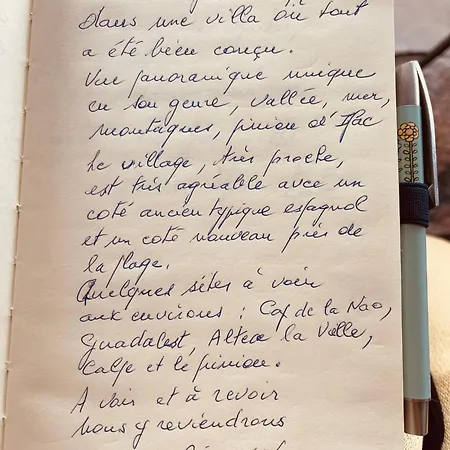 dans une villa où tout
a été bien conçu.
Vue panoramique unique
en son genre, vallée, mer,
montagnes, pinion d'Ifac
Le village, très proche,
est très agréable avec un
coté ancien typique espagnol
et un coté nouveau près de
la plage.
Quelques sites à voir
aux environs : Cap de la Nao,
Guadalest, Altea la Vella,
Calpe et le pinion.
A voir et à revoir
Nous y reviendrons